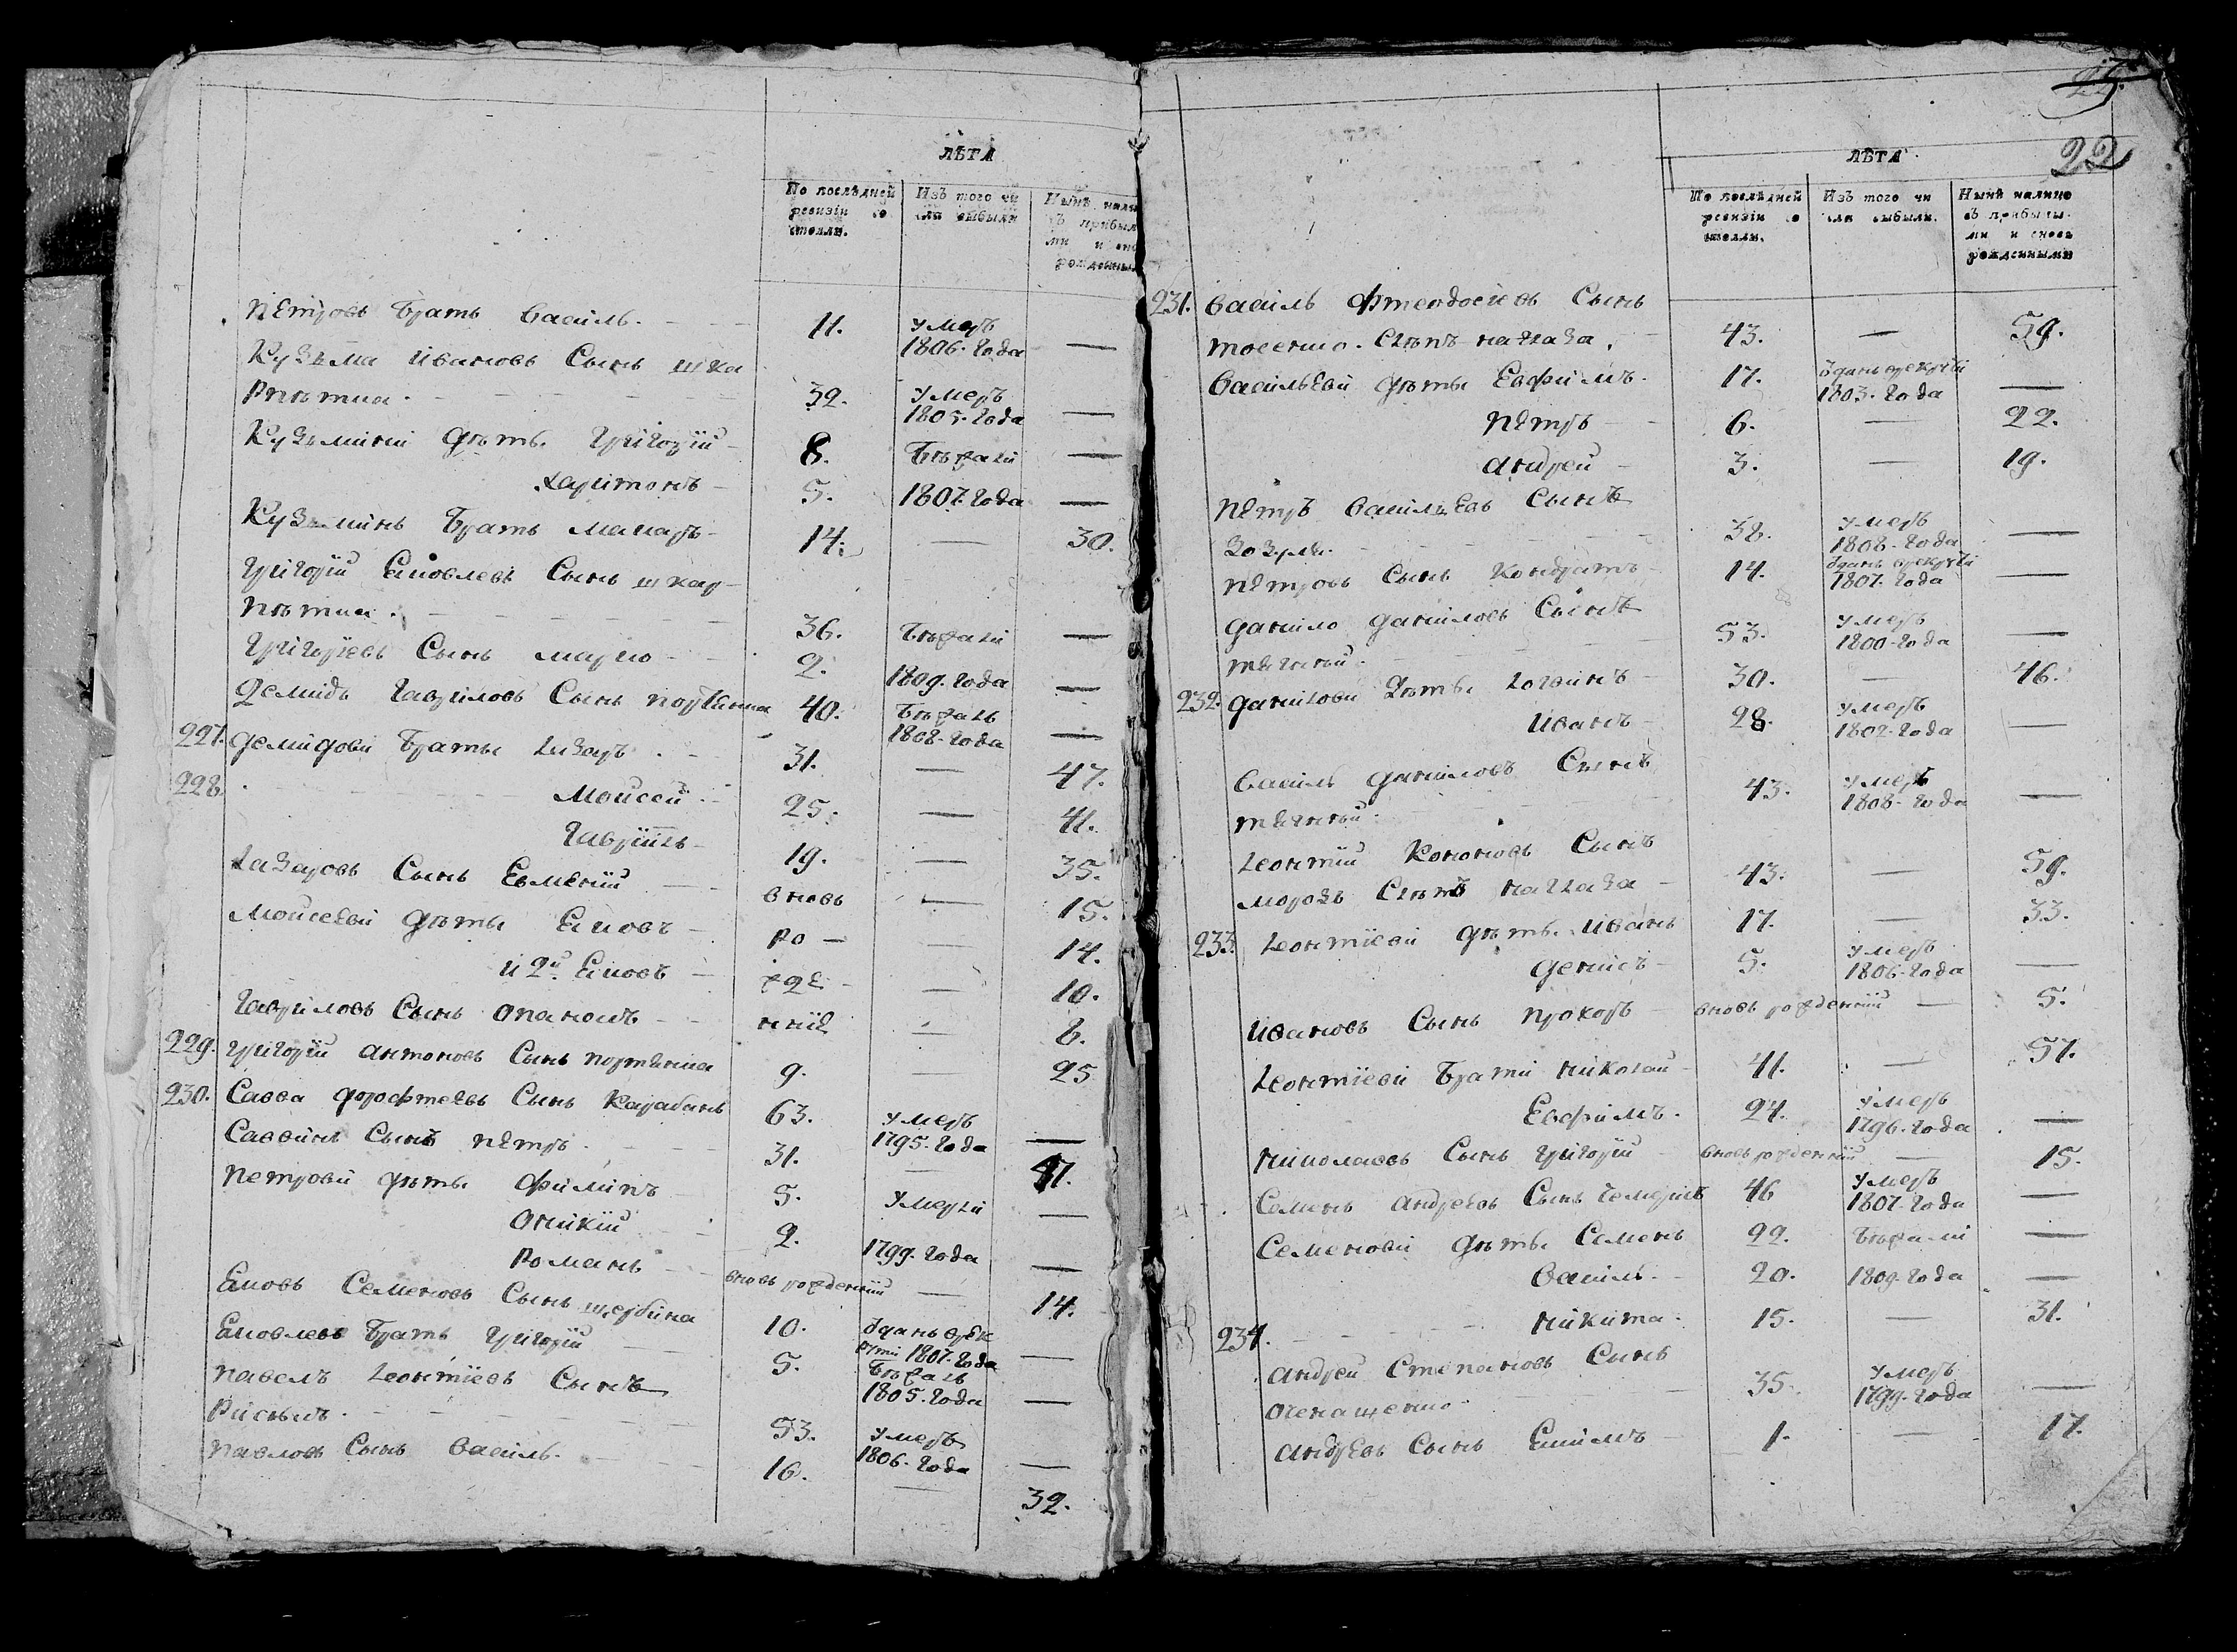 ЛѢТА
По послѣдней ревизіи состояли.
Изъ того числа выбыли
Нынѣ налицо съ прибылыми и вновь рожденными
Петровъ братъ василь. 11. умеръ 1806. года —
Кузьма ивановъ сынъ шка
рпѣтка. 32. умеръ 1805. года —
Кузьмины дѣти григорій 8. бѣжали —
харитонъ 5. 1807. года —
Кузьминъ братъ макаръ 14. — 30.
григорій Еяковлевъ сынъ шкар
пѣтка. 36. бѣжали —
григорьевъ сынъ марко 2. 1809. года —
демидъ гавриловъ сынъ портянка 40. бѣжалъ 1808. года —
227. демидови браты лазарь 31. — 47.
228. мойсей 25. — 41.
гавріилъ 19. — 35.
лазаровъ сынъ Евмений вновь — 15.
мойсееви дѣти Еяковъ ро — — 14.
и 2й Еяковъ жде — 10.
гавриловъ сынъ опанасъ нніе — 8.
229. григорій антоновъ сынъ портянка 9. — 25
230. Савва дорофтеевъ сынъ карабанъ 63. умеръ 1795. года —
Саввинъ сынъ петръ 31. — 47.
петрови дѣти филипъ 5. умерли —
оникій 2. 1799. года —
романъ вновь рожденній — 14.
Еяковъ семеновъ сынъ щербина 10. зданъ врек рути 1807. года —
Еяковлевъ братъ григорій 5. бѣжалъ 1805. года —
павелъ леонтіевъ сынъ
53. умеръ 1806. года —
павловъ сынъ василь. 16. — 32.
22
ЛѢТА
По послѣдней ревизіи состояли.
Изъ того числа выбыли.
Нынѣ налицо съ прибылыми и вновь рожденными
231. василь фтеодосіевъ сынъ
слѣпъ наглаза 43. — 59.
васильеви дѣти Евфимъ 17. зданъ врекруты 1803. года —
петръ 6. — 22.
андрей 3. — 19.
петръ васильевъ сынъ
зозуля. 38. умеръ 1808. года —
петровъ сынъ кондратъ 14. зданъ врекруты 1807. года —
данило даниловъ сынъ
53. умеръ 1800. года —
232. данилови дѣти логвинъ 30. — 46.
иванъ 28. умеръ 1802. года —
василь даниловъ сынъ
43. умеръ 1808. года —
леонтій кононовъ сынъ
морозъ слѣпъ наглаза 43. — 59.
233. леонтіеви дѣти иванъ 17. — 33.
денисъ 5. умеръ 1806. года —
ивановъ сынъ прокопъ вновь рожденній — 5.
леонтіеви брати николай 41. — 57.
Евфимъ. 24. умеръ 1796. года —
николаевъ сынъ григорій вновь рожденній — 15.
Семенъ андреевъ сынъ чемерисъ 46 умеръ 1807. года —
Семенови дѣти семенъ 22. бѣжали —
василь 20. 1809. года —
234. никита 15. — 31.
андрей степановъ сынъ
35. умеръ 1799. года —
андреевъ сынъ Екимъ 1. — 17.